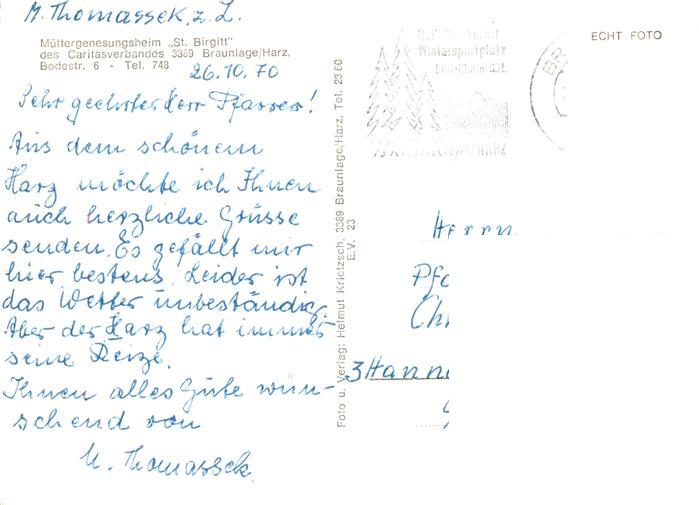 M. Thomassek, z. Z.
Müttergenesungsheim „St. Birgitt"
des Caritasverbandes 3389 Braunlage/Harz,
Bodestr. 6 - Tel. 748
26.10.70
Sehr geehrter Herr Pfarrer!
Aus dem schönem
Harz möchte ich Ihnen
auch herzliche Grüsse
senden. Es gefällt mir
hier bestens. Leider ist
das Wetter unbeständig.
Aber der Harz hat immer
seine Reize.
Ihnen alles Gute wün-
schend von
M. Thomassek
Foto u. Verlag: Helmut Krietzsch, 3389 Braunlage/Harz, Tel. 23 60
E.V. 23
Wintersportplatz
ECHT FOTO
BR
Herrn
Pfa
Ch
3 Hann